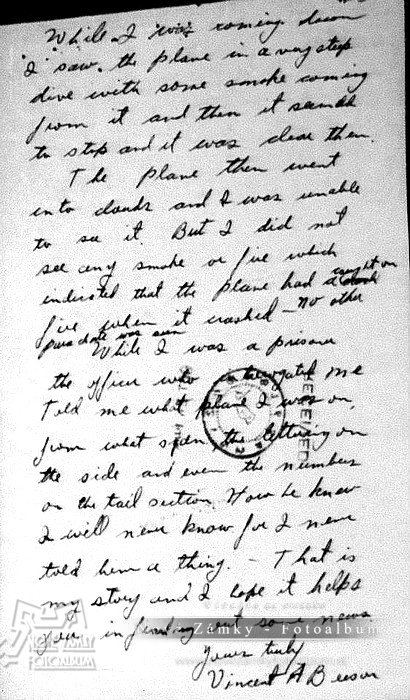 While I was coming down
I saw the plane in a very steep
dive with some smoke coming
from it and then it seemed
to stop and it was clear then.
The plane then went
into clouds and I was unable
to see it. But I did not
see any smoke or fire which
indicated that the plane had caught on
fire when it crashed - no other
parachute was seen
While I was a prisoner
the officer who me
Told me what plane I was on,
from what the lettering on
the side and even the number
on the tail section. How he knew
I will never know for I never
told him a thing. - That is
my story and I hope it helps
you in finding out some news
Yours truly
Vincent A Beeson
Zámky - Fotoalbum
FOTOALBUM